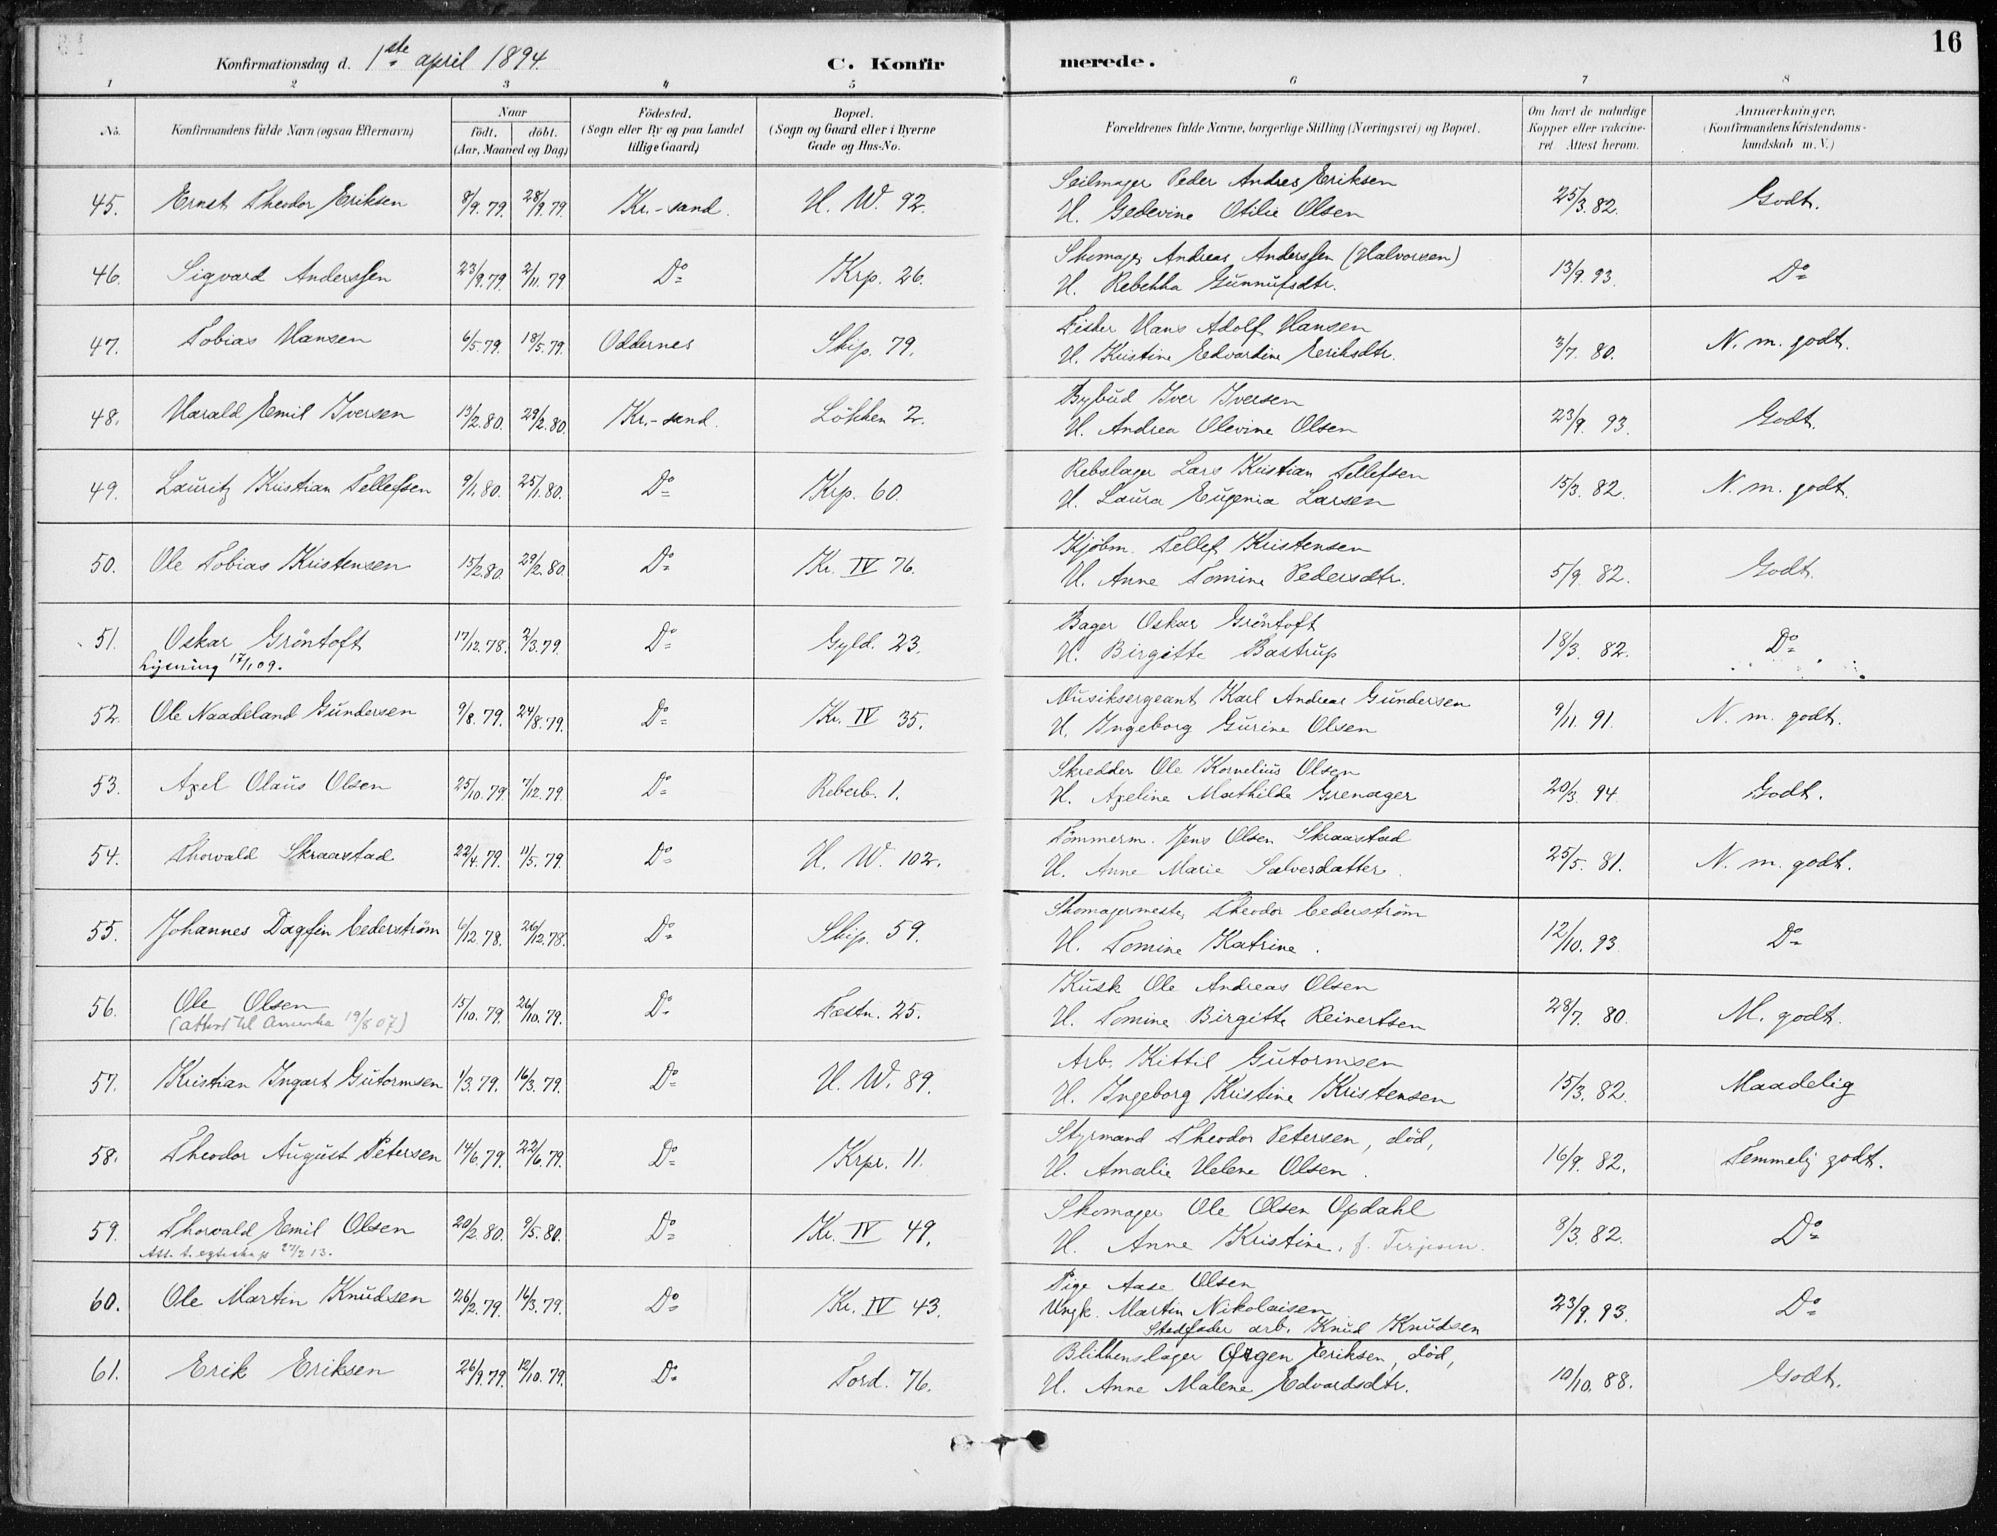 16
Konfirmationsdag d. 1ste april 1894.
C. Konfirmerede.
1 2 3 4 5 6 7 8
No. | Konfirmandens fulde Navn (ogsaa Efternavn) | Naar født. døbt. (Aar, Maaned og Dag) | Fødested. (Sogn eller By og paa Landet tillige Gaard) | Bopæl. (Sogn og Gaard eller i Byerne Gade og Hus-No. | Forældrenes fulde Navne, borgerlige Stilling (Næringsvei) og Bopæl. | Om havt de naturlige Kopper eller vakcineret. Attest herom. | Anmærkninger. (Konfirmandens Kristendomskundskab m. V.)
45. Ernst Theodor Eriksen 8/9.79. 28/9.79. Kr.-sand. H. W. 92. Seilmager Peder Andres Eriksen
H. Gedevine Otilie Olsen 25/3.82. Godt.
46. Sigvard Anderssen 23/9.79. 2/11.79. Do Krp. 26. Skomager Andreas Anderssen (Halvorsen)
H. Rebekka Gunnufsdtr. 13/9.93. Do
47. Tobias Hansen 6/5.79. 18/5.79. Oddernes Skip. 79. Fisker Hans Adolf Hansen
H. Kristine Edvardine Eriksdtr. 3/7.80. N. m. godt.
48. Harald Emil Iversen 13/2.80. 29/2.80. Kr.-sand. Løkken 2. Bybud Iver Iversen
H. Andrea Olevine Olsen 23/9.93. Godt.
49. Lauritz Kristian Tellefsen 9/1.80. 25/1.80. Do Krp. 60. Rebslager Lars Kristian Tellefsen
H. Laura Eugenia Larsen 15/3.82. N. m. godt.
50. Ole Tobias Kristensen 15/2.80. 29/2.80. Do Kr. IV 76. Kjøbm. Tellef Kristensen
H. Anne Tomine Pedersdtr. 5/9.82. Godt.
51. Oskar Grøntoft 17/12.78. 2/3.79. Do Gyld. 23. Bager Oskar Grøntoft
Lysning 17/1 09. H. Birgitte Bastrup 18/3.82. Do
52. Ole Naadeland Gundersen 9/8.79. 24/8.79. Do Kr. IV 35. Musiksergeant Karl Andreas Gundersen
H. Ingeborg Gurine Olsen 9/11.91. N. m. godt.
53. Axel Olaus Olsen 25/10.79. 7/12.79. Do Reberb. 1. Skredder Ole Kornelius Olsen
H. Axeline Mathilde Grenager 20/3.94. Godt.
54. Thorvald Skraastad 22/4.79. 11/5.79. Do H. W. 102. Tømmerm. Jens Olsen Skraastad
H. Anne Marie Salvesdatter. 25/5.81. N. m. godt.
55. Johannes Dagfin Cederstrøm 6/12.78. 26/12.78. Do Skip. 59. Skomagermester Theodor Cederstrøm
H. Tomine Katrine. 12/10.93 Do
56. Ole Olsen 15/10.79. 26/10.79. Do Fæstn. 25. Kusk Ole Andreas Olsen
(attest til Amerika 19/8 07) H. Tomine Birgitte Reinertsen 28/7.80. M. godt.
57. Kristian Ingart Gutormsen 1/3.79. 16/3.79. Do H. W. 89. Arb. Kittil Gutormsen
H. Ingeborg Kristine Kristensen 15/3.82. Maadelig
58. Theodor August Petersen 14/6.79. 22/6.79. Do Krpr. 11. Styrmand Theodor Petersen, død,
H. Amalie Helene Olsen. 16/9.82. Temmelig godt.
59. Thorvald Emil Olsen 20/2.80. 9/5.80. Do Kr. IV 49. Skomager Ole Olsen Opdahl
Att. t. egteskap 27/2 13. H. Anne Kristine, f. Terjesen. 8/3.82. Do
60. Ole Martin Knudsen 26/2.79. 16/3.79. Do Kr. IV 43. Pige Aase Olsen
Ungk. Martin Nikolaisen
Stedfader arb. Knud Knudsen 23/9.93. Do
61. Erik Eriksen 26/9.79. 12/10.79. Do Tord. 76. Blikkenslager Ørgen Eriksen, død,
H. Anne Malene Edvardsdtr. 10/10.88. Godt.